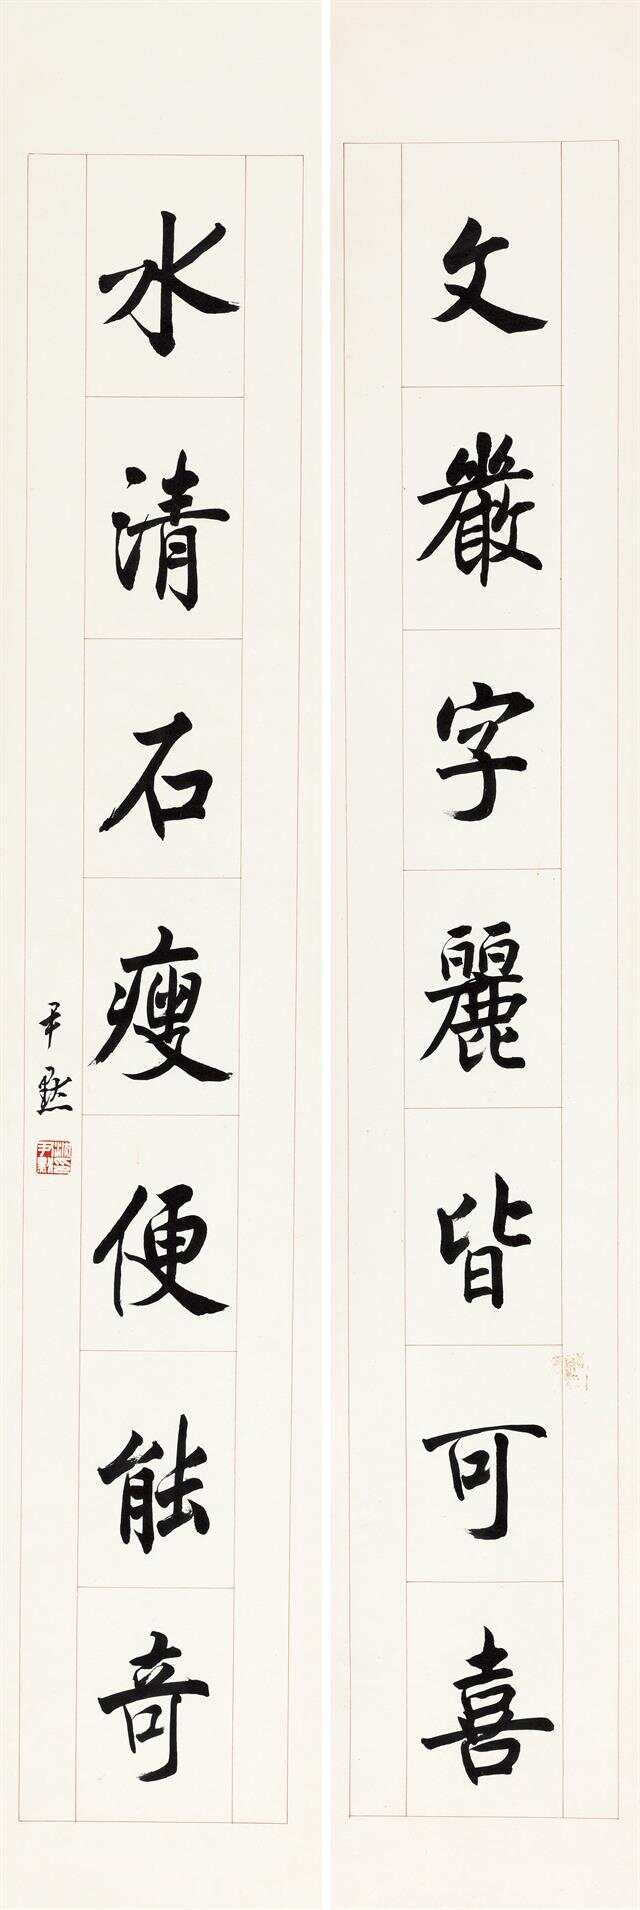 文嚴字麗皆可喜
水清石瘦便能奇
尹默